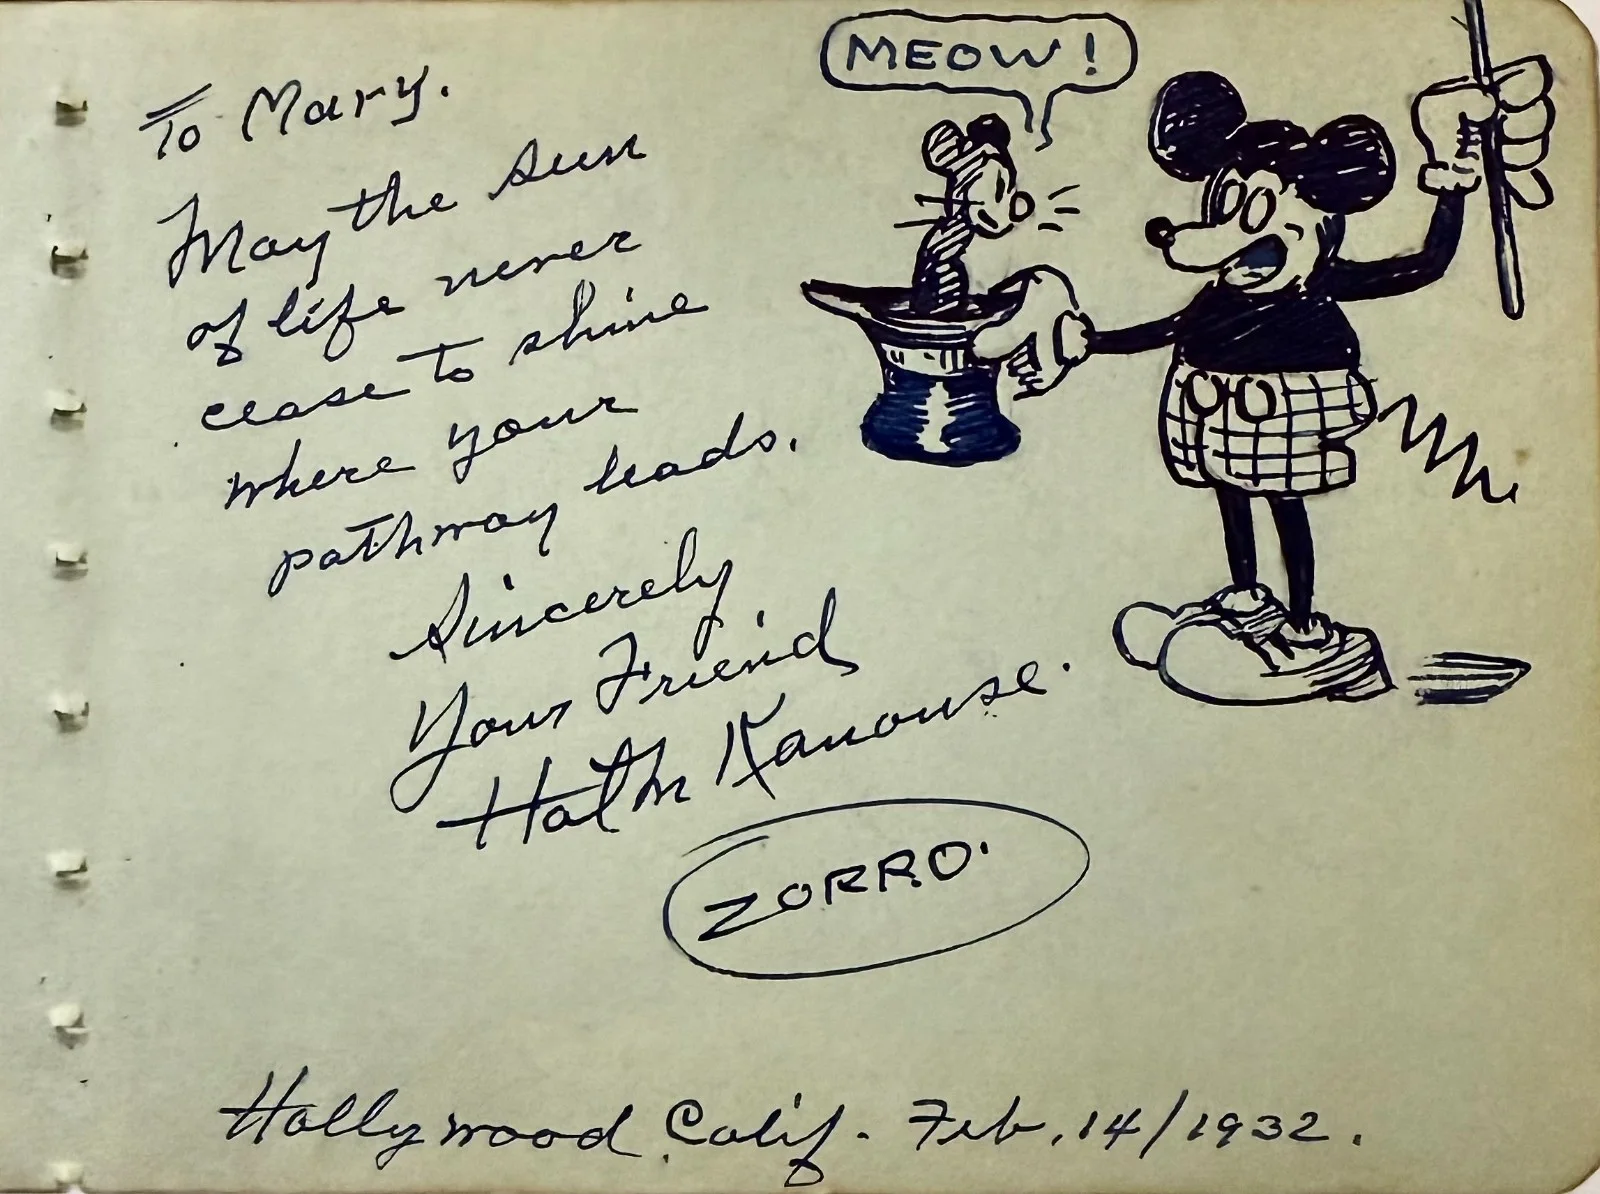 MEOW!
To Mary.
May the sun
of life never
cease to shine
where your
pathway leads.
Sincerely
Your Friend
Kanouse.
ZORRO.
Hollywood Calif. Feb. 14/1932.